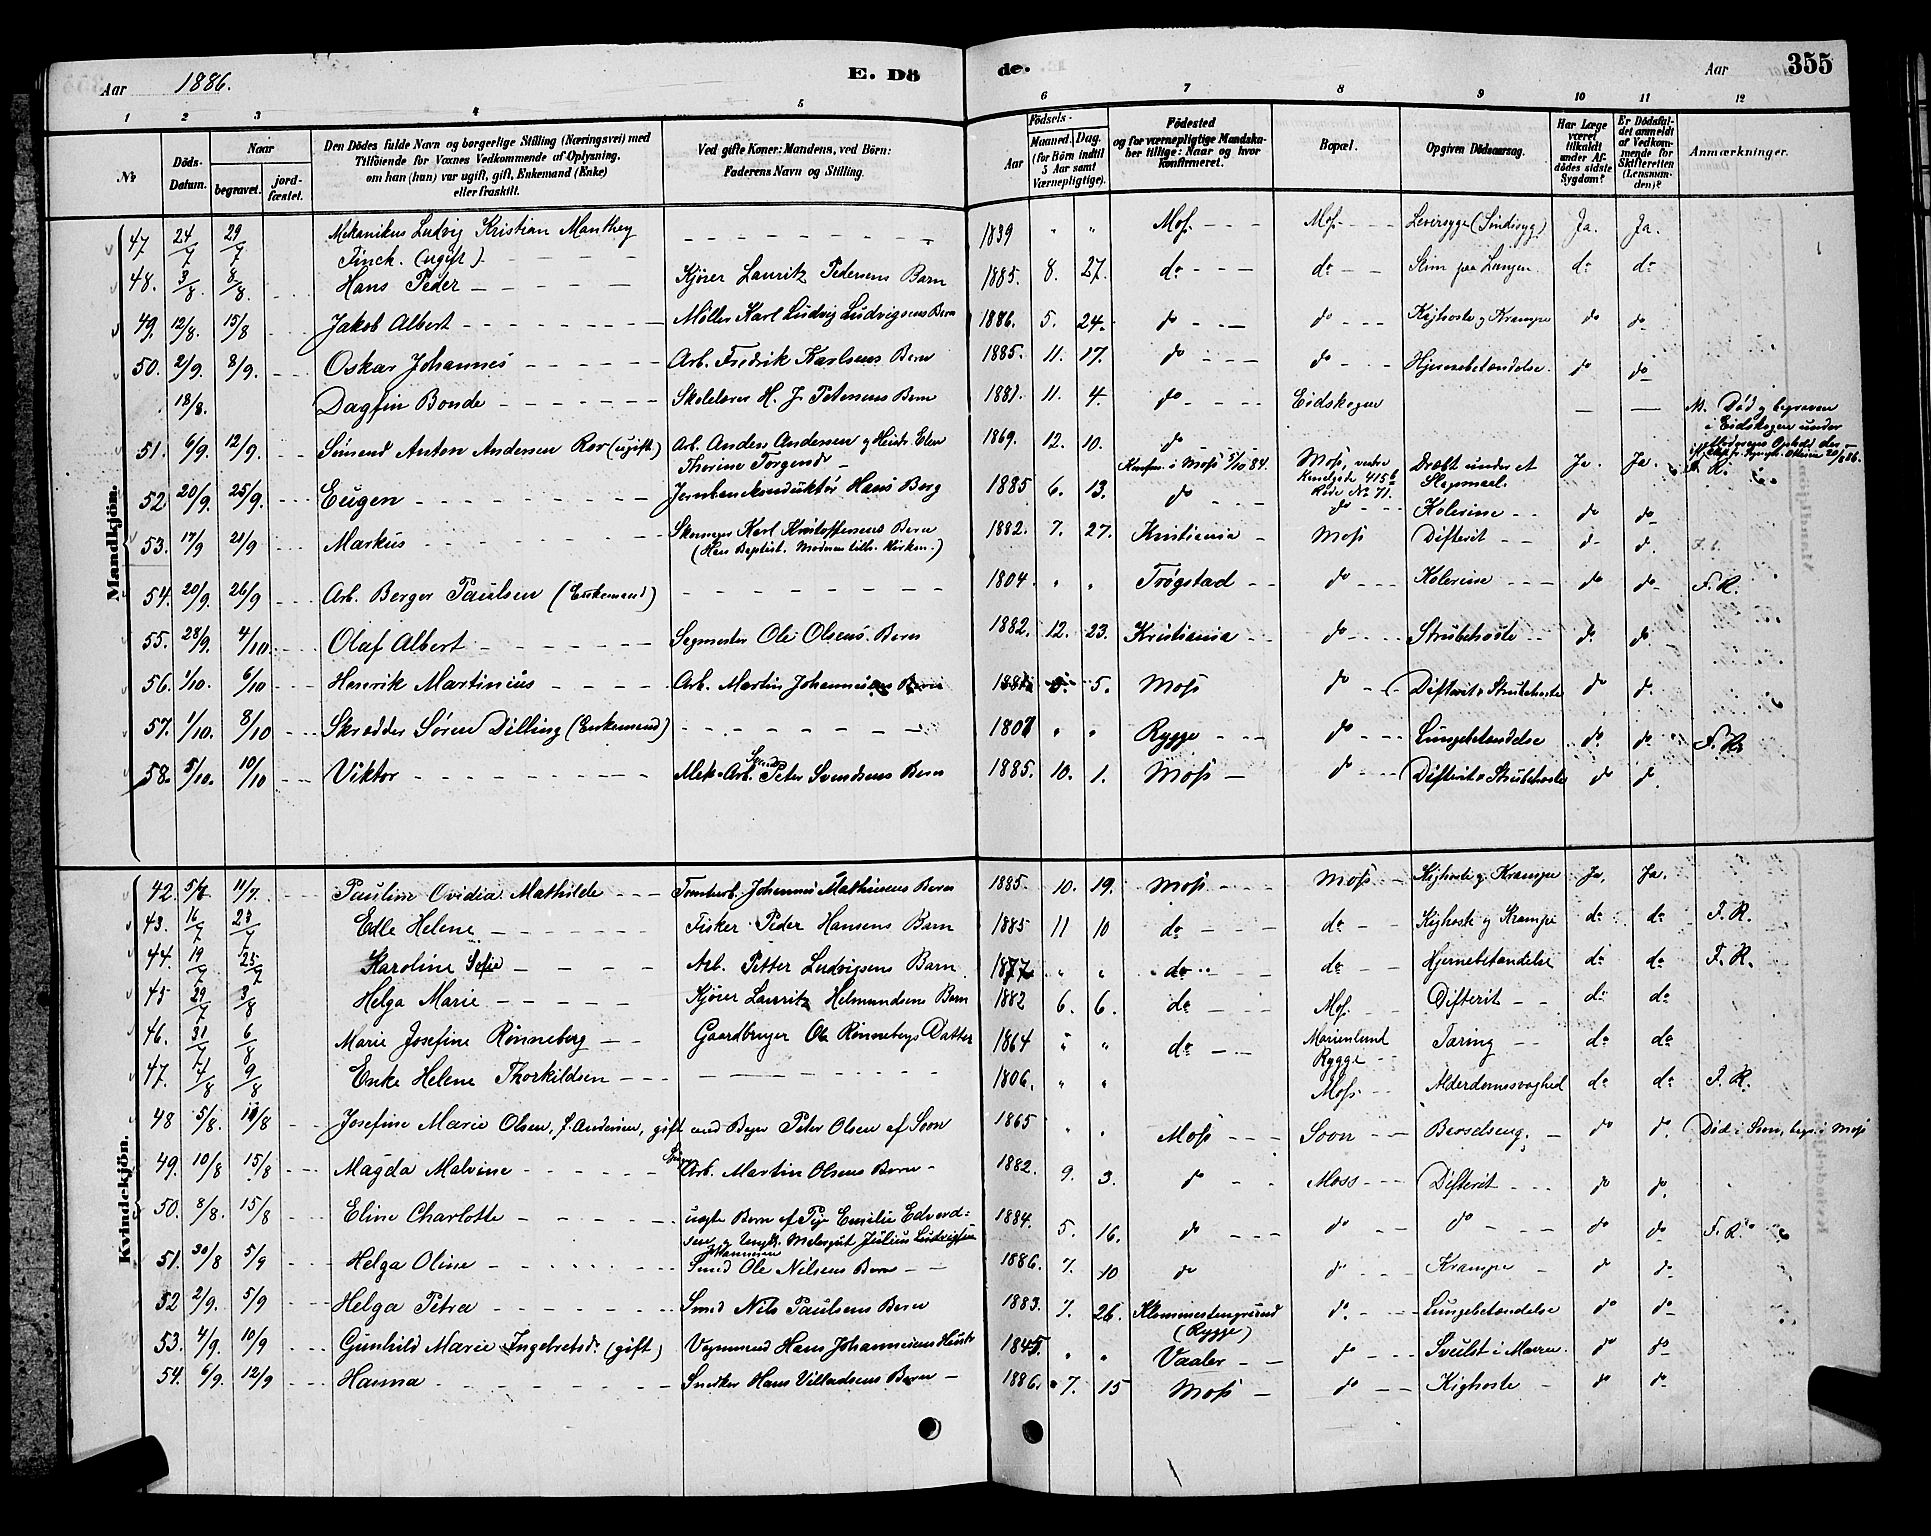 Aar 1886. E. Dö de. Aar 355
1 2 3 4 5 6 7 8 9 10 11 12
No. Döds-Datum. Naar begravet. jord-fæstet. Den Dödes fulde Navn og borgerlige Stilling (Næringsvei) med Tilföiende for Voxnes Vedkommende af Oplysning, om han (hun) var ugift, gift, Enkemand (Enke) eller fraskilt. Ved gifte Koner: Mandens, ved Börn: Faderens Navn og Stilling. Födsels- Aar Maaned. Dag. (for Börn indtil 5 Aar samt Værnepligtige). Födested og for værnepligtige Mandska-ber tillige: Naar og hvor konfirmeret. Bopæl. Opgiven Dödsaarsag. Har Læge været tilkaldt under Af-dödes sidste Sygdom? Er Dödsfal-det anmeldt af Vedkom-mende for Skifteretten (Lensman-den)? Anmærkninger.
Mandkjön.
47. 24/7 29/7 Mekanikus Ludvig Kristian Manthey 1839 " " Moss Moss Leversyge (Sindssyg) Ja. Ja.
Finck. (ugift)
48. 3/8. 8/8. Hans Peder Kjører Lauritz Pedersens Barn 1885. 8. 27. do do Slim paa Lungen. do do
49. 12/8. 15/8 Jakob Albert Møller Karl Ludvig Ludvigsens Barn 1886. 5. 24. do do Kighoste og Krampe do do
50. 2/9. 8/9. Oskar Johannes Arb. Fredrik Karlsens Barn 1885. 11. 17. do do Hjernebetændelse. do do
18/8. Dagfin Bonde Skolelærer H. J. Petersens Barn 1881. 11. 4. do Eidskogen — — Død og begraven
i Eidskogen under
Moderens Ophold der
51. 6/9. 12/9. Simend Anton Andersen Rør (ugift) Arb. Anders Andersen og Hustr. Elen 1869. 12. 10. do
Therine Torgersd. Konfirm. i Moss 5/10 84. Moss, vestre Dræbt under et Slagsmaal. Ja. Ja.
52. 20/9. 25/9. Eugen Jernbanekonduktør Hans Berg 1885 6. 13. do do Kolerine do do
53. 17/9 21/9 Markus Skomager Karl Kristoffersens Barn 1882. 7. 27. Kristiania Moss Difterit do do
(Han Baptist. Moderen tilh. Kirken.)
54. 20/9. 26/9 Arb. Berger Paulsen (Enkemand) 1804. " " Trøgstad do Kolerine do do F. R.
55. 28/9. 4/10. Olaf Albert Sagmester Ole Olsens Barn 1882. 12. 23. Kristiania do Strubehoste do do
56. 1/10. 6/10 Henrik Martinius Arb. Martin Johannesens Barn 5. Moss do Difterit o Strubehoste do do
57. 1/10. 8/10 Skrædder Søren Dilling (Enkemand) " " Rygge do Lungebetændelse do do F. R.
58. 5/10. 10/10 Viktor Mek. Arb. Peter Svendsens Barn 1885. 10. 1. Moss do Difterit o Strubehoste do do
Kvindekjön.
42. 5/7 11/7. Pauline Ovidia Mathilde Tomtearb. Johannes Mathisens Barn 1885. 10. 19. Moss Moss Kighoste og Krampe Ja. Ja.
43. 16/7 23/7 Edle Helene Fisker Peder Hansens Barn 1885 11 10 do do Kighoste og Krampe do do F. R.
44. 19/7 25/7 Karoline Sofie Arb. Petter Ludvigsens Barn 1877 " " do do Hjernebetændelse do do F. R.
45 29/7 3/8 Helga Marie Kjører Lauritz Helmundsens Barn 1882 6. 6. do Moss Difterit do do
46. 31/7 6/8 Marie Josefine Rønneberg Gaardbruger Ole Rønnebergs Datter 1864 " " do Marienlund Rygge Tæring do do
47. 4/8 9/8 Enke Helene Thorkildsen 1806. " " Moss Alderdomssvaghed do do F. R.
48 5/8. 10/8 Josefine Marie Olsen, f. Andersen, gift med Bager Peter Olsen af Soon 1865 " " Moss Soon Barselseng. do do Død i Soon, begr. i Moss
49. 10/8 15/8 Magda Malvine Arb. Martin Olsens Barn 1882. 9. 3. do Moss Difterit do do
50. 8/8. 15/8 Eline Charlotte uægte Barn af Pige Emilie Edvard- 1884. 5. 16. do do do do do F. R.
sen og Ungk. Malersvd Julius Ludvigsen
51. 30/8 5/9 Helga Oline Smed Ole Nilsens Barn 1886. 7. 10 do do Krampe do do
52 2/9. 5/9 Helga Petra Smed Nils Paulsens Barn 1883. 7. 26. Klommestengrund (Rygge) do Lungebetændelse do do
53. 4/9. 10/9 Gunhild Marie Ingebretsd. (gift) Vognmand Hans Johannesens Hustr. 1845. " " Vaaler do Svulst i Maven. do do
54. 6/9. 12/9 Hanna Snedker Hans Villadsens Barn 1886. 7. 15 Moss do Kighoste do do